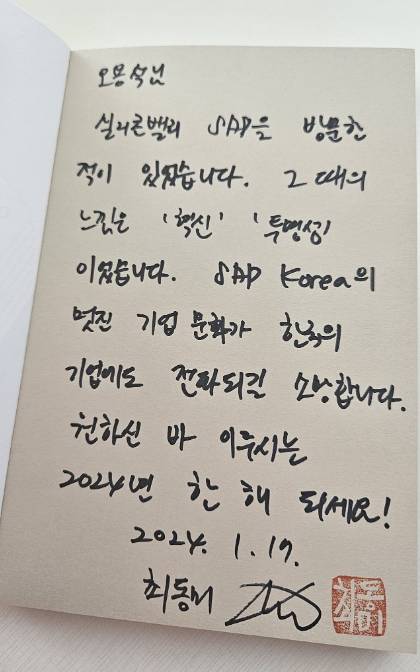 오용석님
실리콘밸리 SAP을 방문한
적이 있었습니다. 그 때의
느낌은 '혁신' '투명성'
이었습니다. SAP Korea의
멋진 기업 문화가 한국의
기업에도 전파되길 소망합니다.
원하신 바 이루시는
2024년 한 해 되세요!
2024. 1. 17.